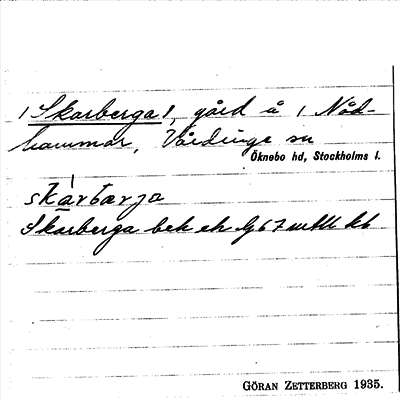 /Skarberga/, gård å / Nåd-
hammar, Vårdinge sn
Öknebo hd, Stockholms l.
skarbarja
Skarberga bek eh
GÖRAN ZETTERBERG 1935.